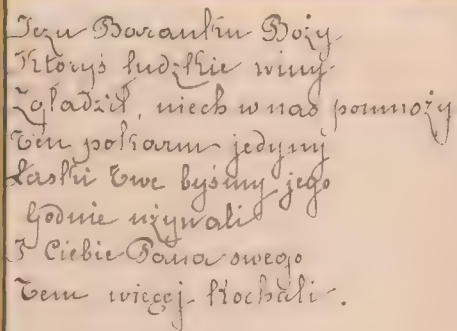 Jezu Baranku Boży
Któryś ludzkie winy
Zgładził, niech w nas pomnoży
Ten pokarm jedyny
Łaski Twe byśmy jego
Godnie używali
I Ciebie Pana swego
Tem więcej kochali.